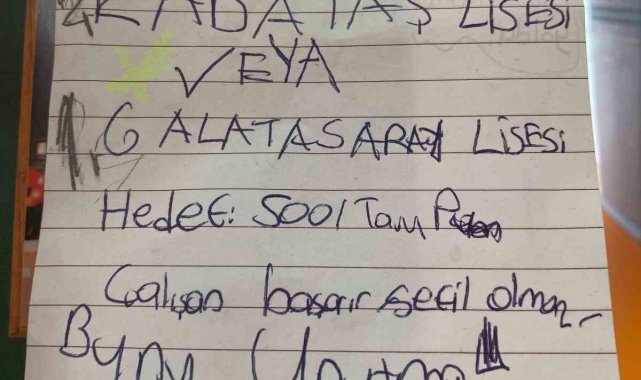 2. KABATAŞ LİSESİ
VEYA
1. GALATASARAY LİSESİ
Hedef: 500/Tam Puan
Çalışan başarır sefil olmaz.
Bunu Unutma!!!